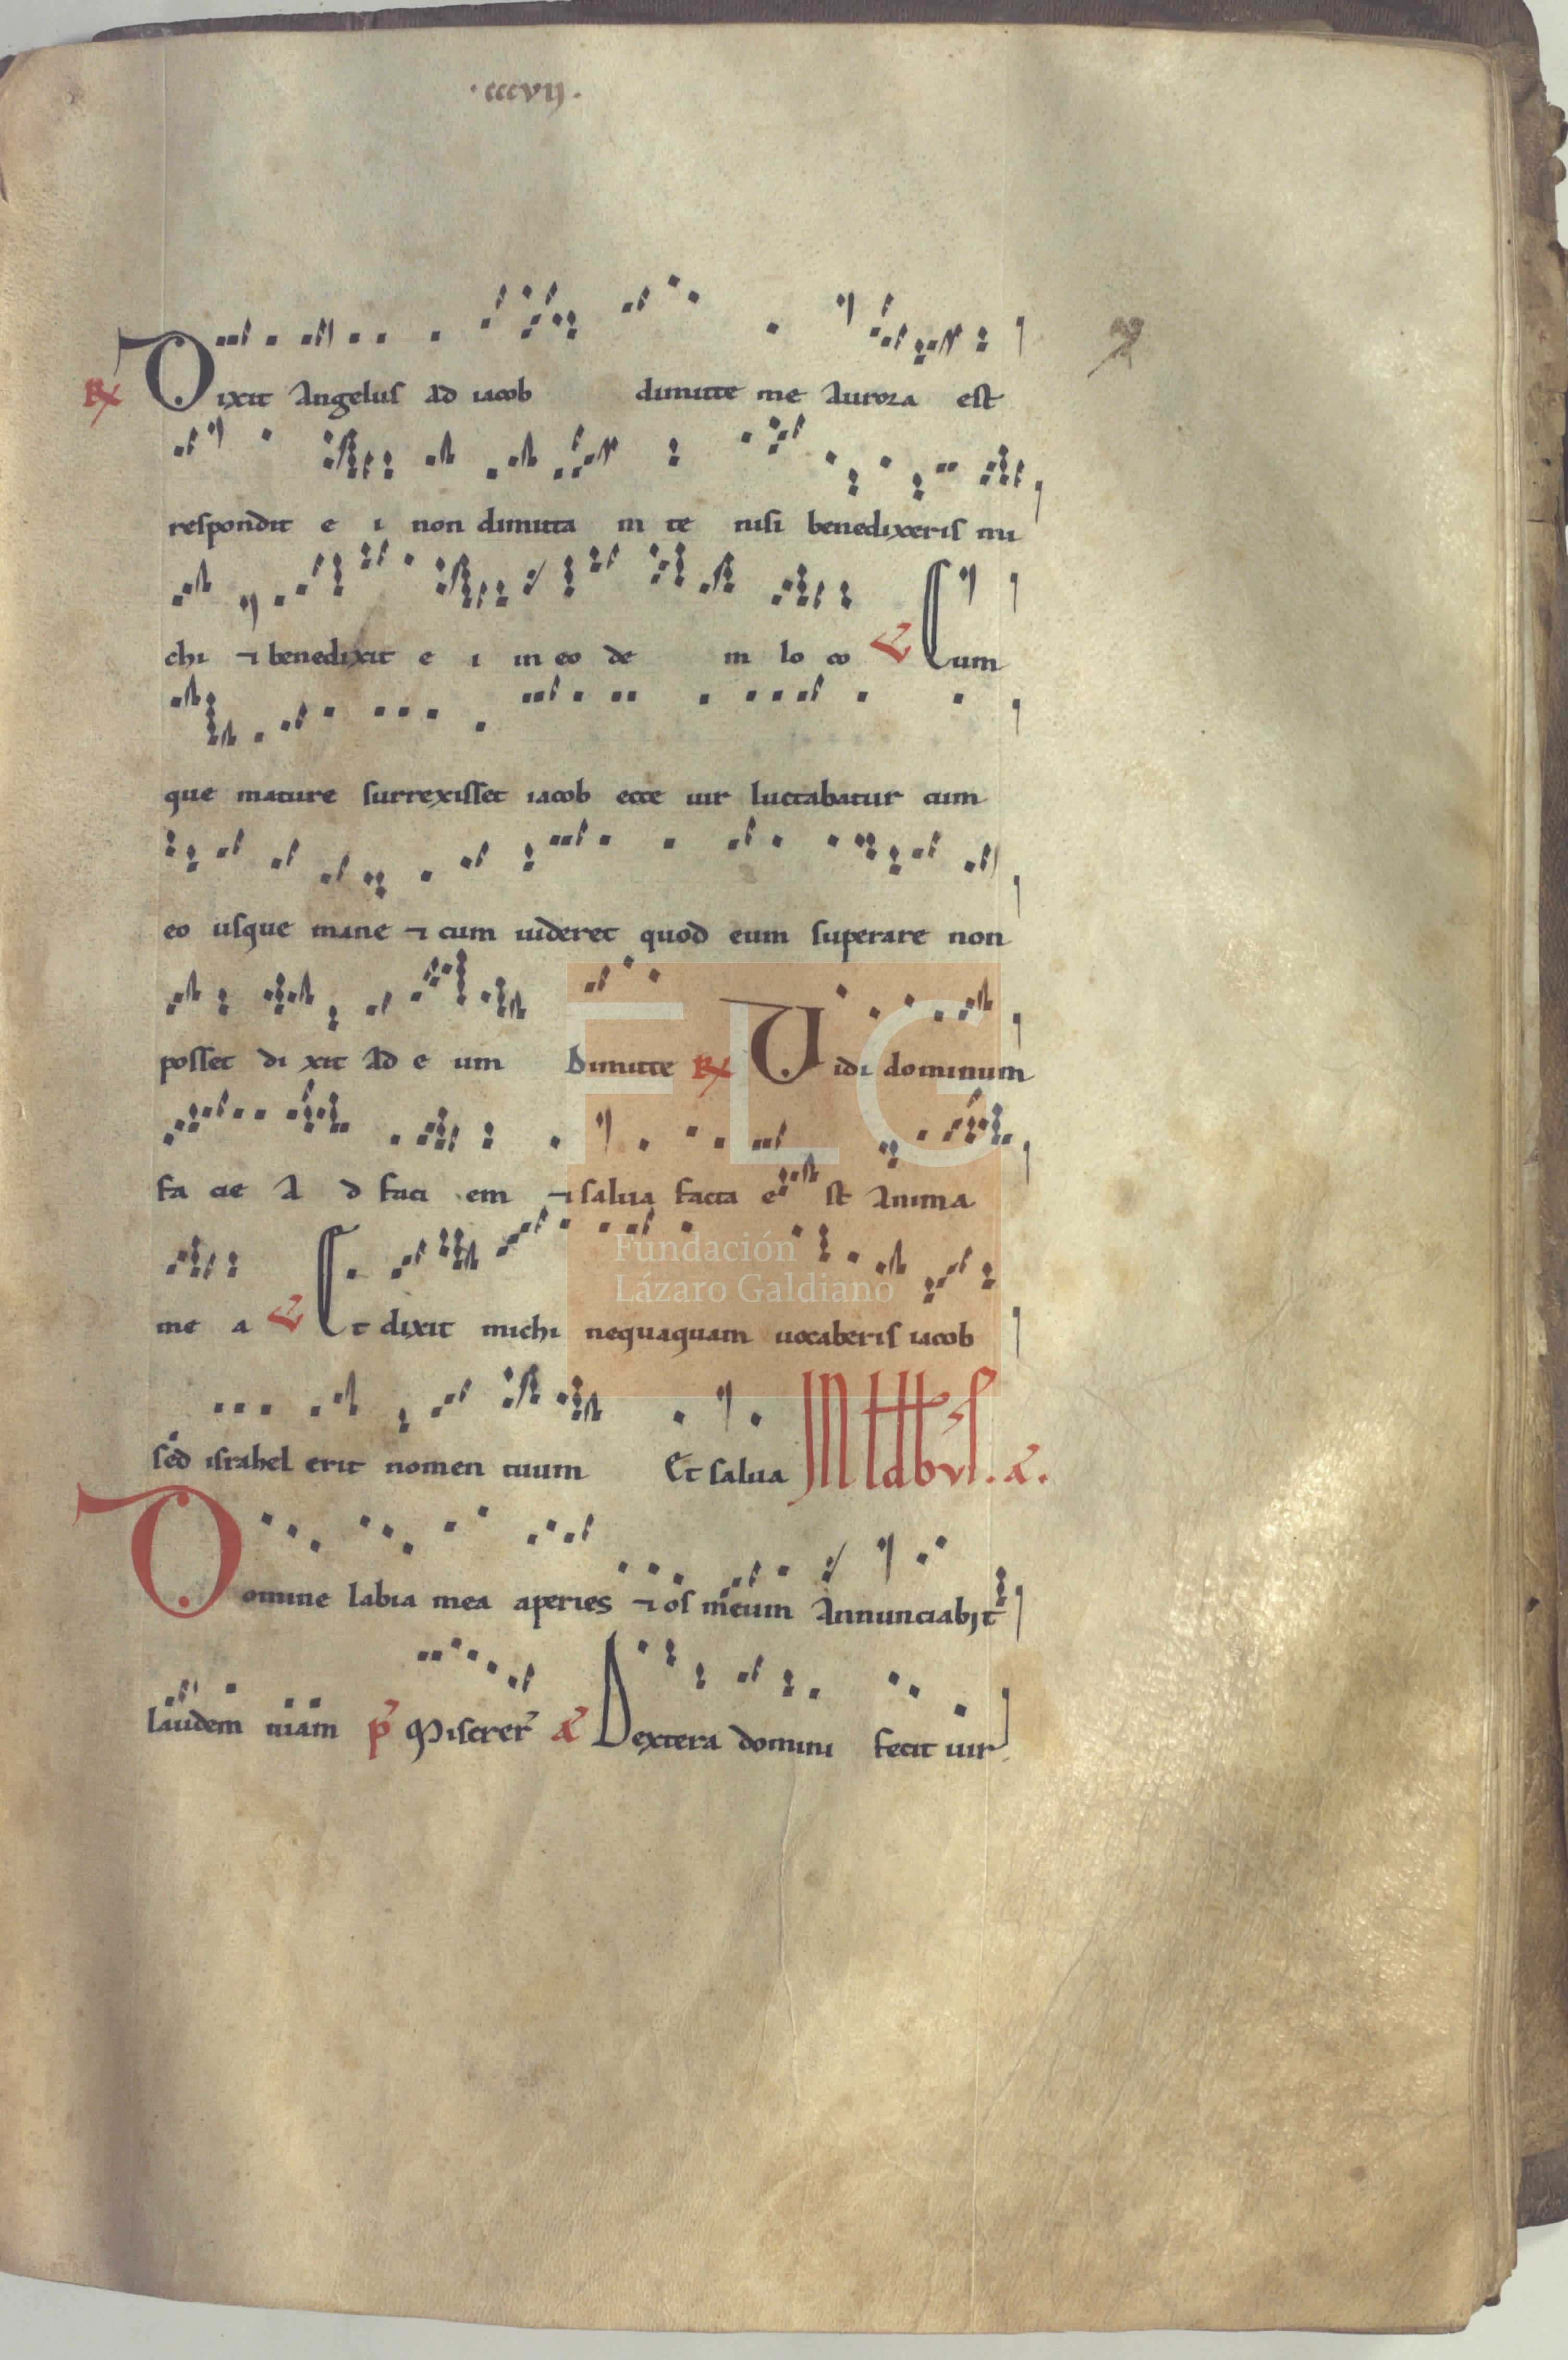 ·cccvij·
R Dixit Angelus ad iacob dimitte me aurora est
respondit e i non dimitta m te nisi benedixeris mi
chi ⁊ benedixit e i in eo de m lo co V Cum
que mature surrexisset iacob ecce uir luctabatur cum
eo usque mane ⁊ cum uideret quod eum superare non
posset di xit ad e um Dimitte R Uidi dominum
fa cie a d faci em ⁊ salua facta e st anima
me a V Et dixit michi nequaquam uocaberis iacob
sed israhel erit nomen tuum Et salua
Domine labia mea aperies ⁊ os meum annunciabit
laudem tuam p̉ Miserer̉ ả Dextera domini fecit uir
FLG
Fundación
Lázaro Galdiano